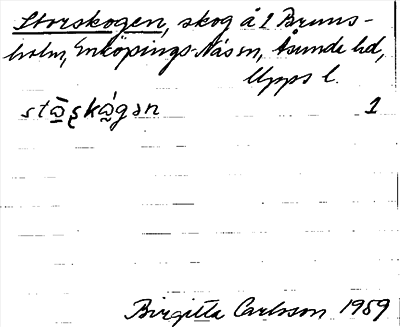 Storskogen, skog å 1 Bruns-
holm, Enköpings-Näs sn, Åsunda hd,
Upps l.
stω̄ʂkὼgən 1
Birgitta Carlsson 1959